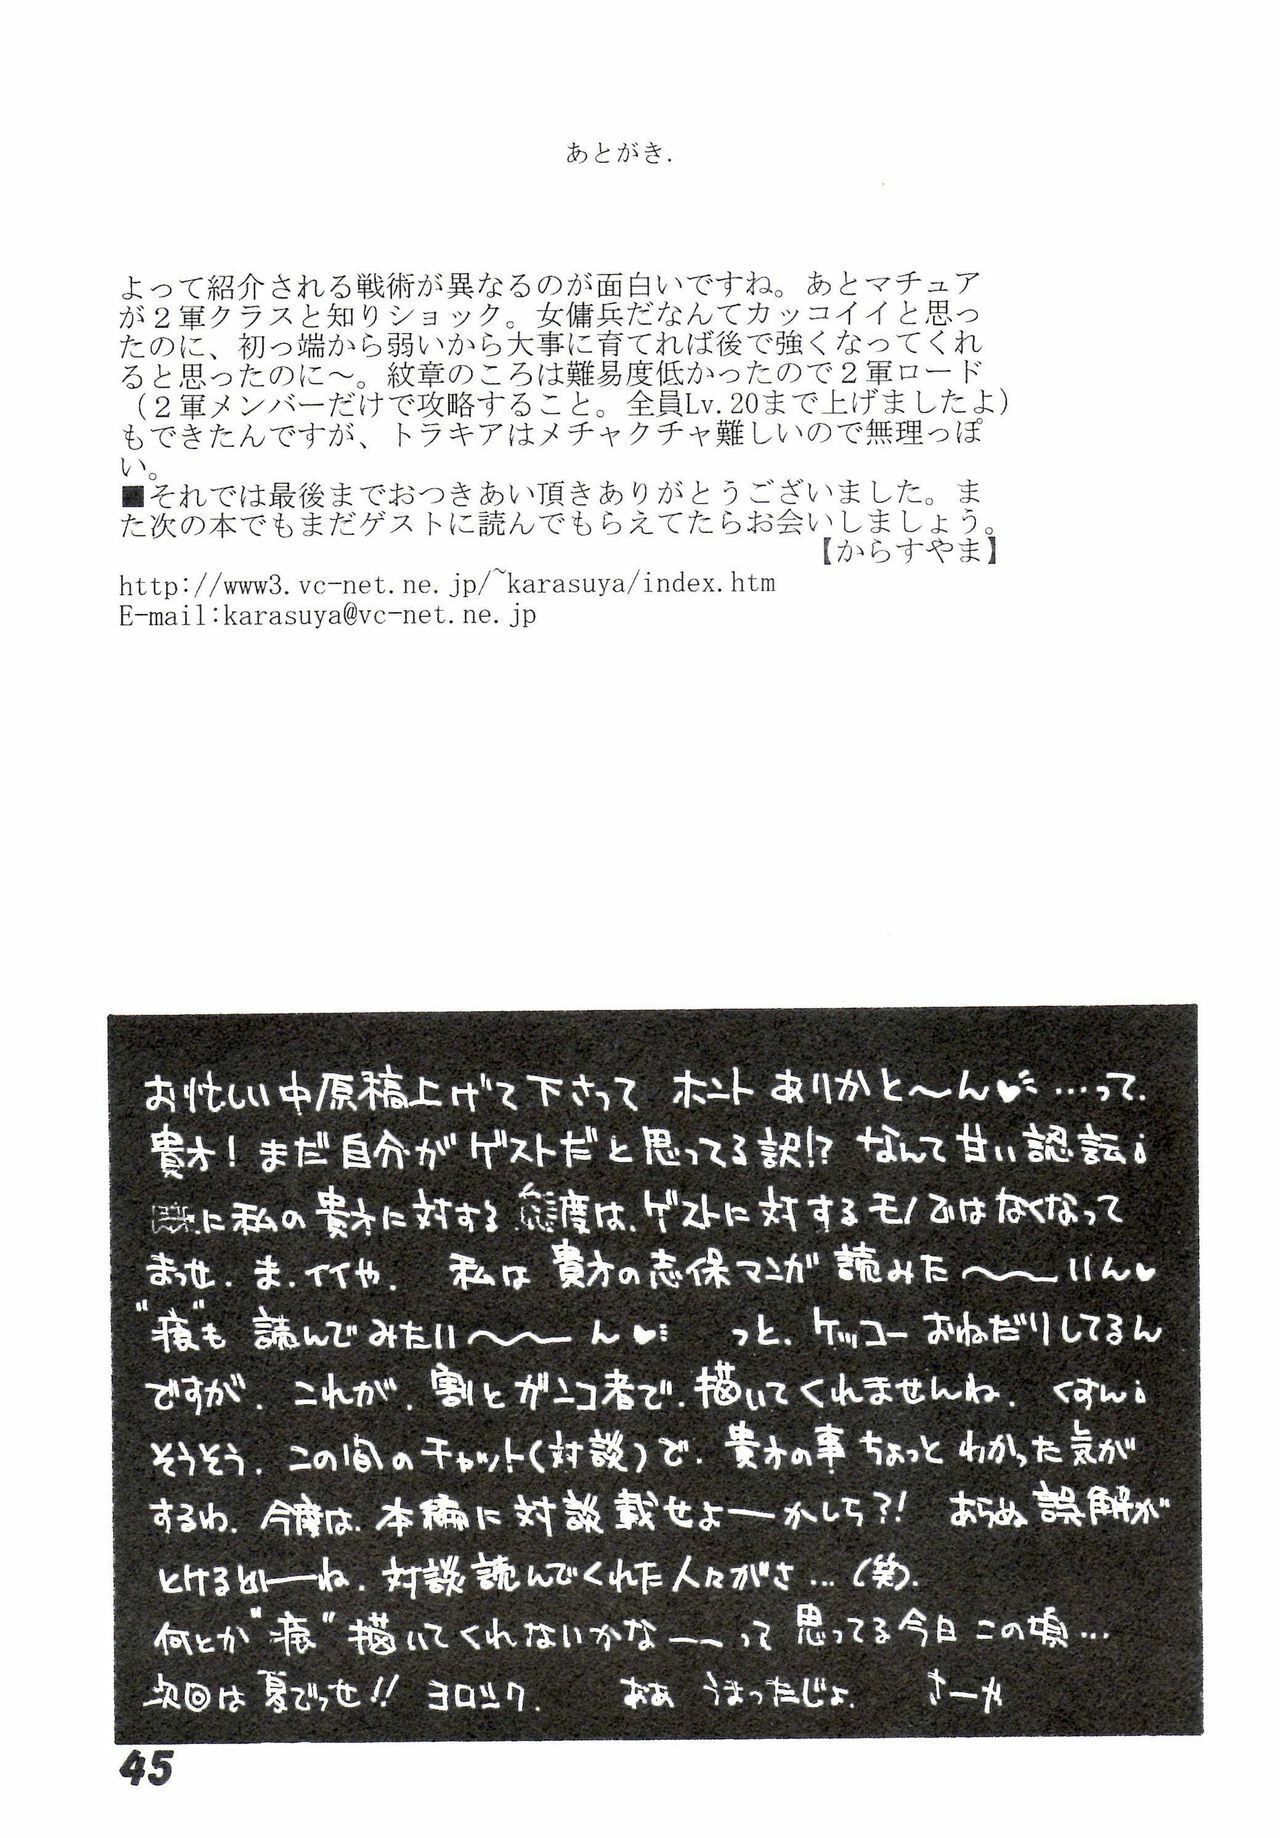 あとがき.
よって紹介される戦術が異なるのが面白いですね。あとマチュア
が２軍クラスと知りショック。女傭兵だなんてカッコイイと思っ
たのに、初っ端から弱いから大事に育てれば後で強くなってくれ
ると思ったのに～。紋章のころは難易度低かったので２軍ロード
（２軍メンバーだけで攻略すること。全員Lv.20まで上げましたよ）
もできたんですが、トラキアはメチャクチャ難しいので無理っぽ
い。
■それでは最後までおつきあい頂きありがとうございました。ま
た次の本でもまだゲストに読んでもらえてたらお会いしましょう。
【からすやま】
http://www3.vc-net.ne.jp/~karasuya/index.htm
E-mail:karasuya@vc-net.ne.jp
お忙しい中原稿上げて下さって ホント ありがと〜ん♥ …って.
貴方！まだ自分がゲストだと思ってる訳!? なんて甘い認識¡
に私の貴方に対する態度は、ゲストに対するモノではなくなって
まっせ. ま.イイや. 私は貴方の志保マンガ読みた〜〜いん♥
も 読んでみたい〜〜ん♥ っと、ケッコーおねだりしてるん
ですが. これが. 割とガンコ者で. 描いてくれませんね. くすん¡
そうそう. この間のチャット(対談)で. 貴方の事ちょっとわかった気が
するわ. 今度は. 本編に対談載せよーかしら?! あらぬ誤解が
とけるといーね. 対談読んでくれた人々がさ…(笑).
何とか 描いてくれないかなーって思ってる今日この頃…
次回は夏でっせ!! ヨロシク. おお うまったじょ. さーや
45